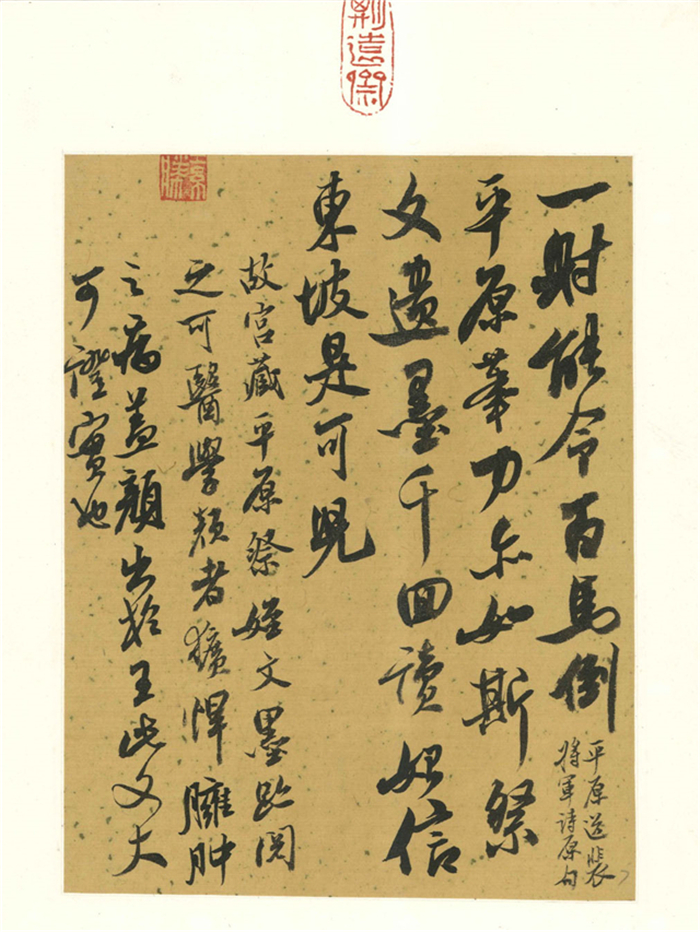 一射能令百馬倒
平原送裴
將軍詩原句
平原筆力亦如斯祭
文遺墨千回讀始信
東坡是可兒
故宮藏平原祭姪文墨跡閱
之可醫學顏者獷悍臃肿
之病蓋顏出於王此文大
可證實也